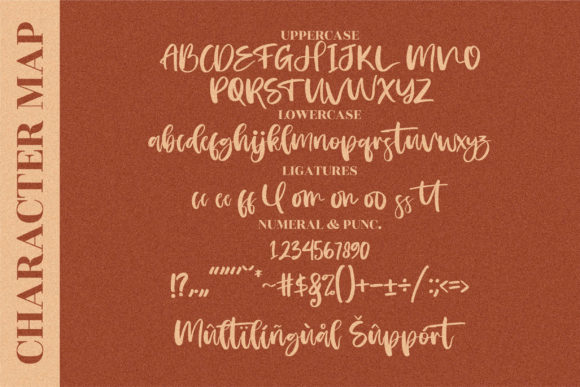 CHARACTER MAP
UPPERCASE
ABCDEFGHIJKL MNO
PQRSTUVWXYZ
LOWERCASE
abcdefghijklmnopqrstuvwxyz
LIGATURES
cc ee ff ll om on oo ss tt
NUMERAL & PUNC.
1234567890
!?,.,,"""''˘*~#$&%()+-±÷/:;<=>
Mûltïlíñgùål Šûppórt